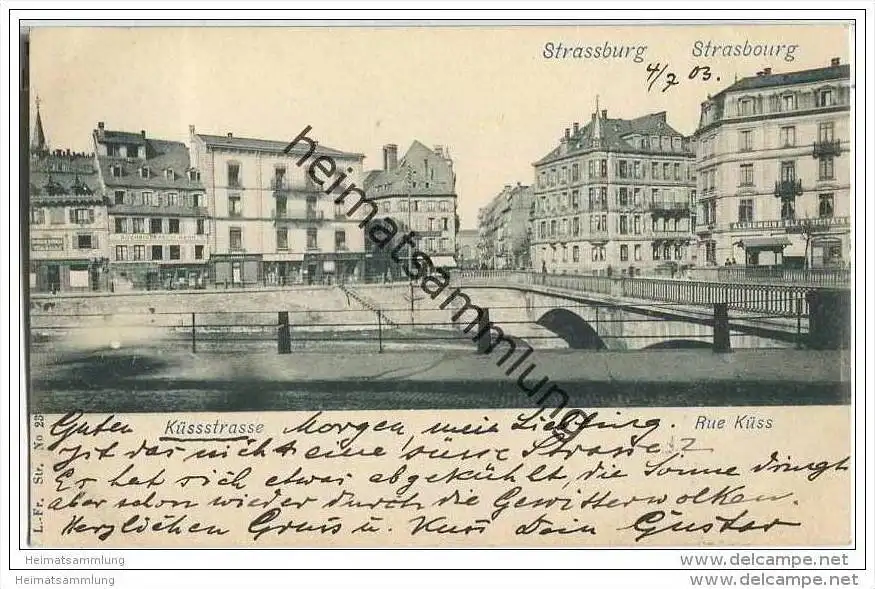 Strassburg Strasbourg
4/7 03.
ALLGEMEINE
heimatsammlung
Küssstrasse Rue Küss
Guten Morgen, mein Liebling.
Ist das nicht eine süsse Strasse?
Es hat sich etwas abgekühlt, die Sonne dringt
aber schon wieder durch die Gewitterwolken.
Herzlichen Gruss u. Kuss Dein Gustav
L.-Fr. Str. No 23
Heimatsammlung
www.heimatsammlung.de
Heimatsammlung
www.heimatsammlung.de